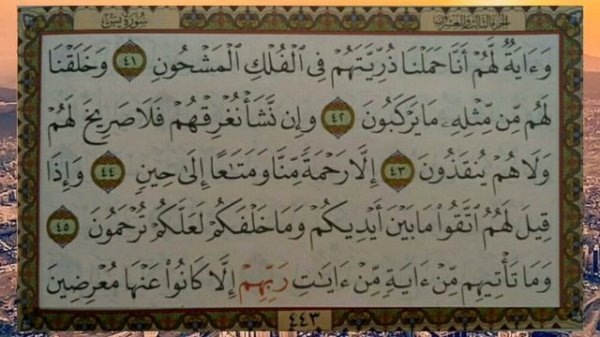 الجزء الثالث والعشرون سورة يس
وَءَايَةٌ لَّهُمْ أَنَّا حَمَلْنَا ذُرِّيَّتَهُمْ فِي الْفُلْكِ الْمَشْحُونِ ٤١ وَخَلَقْنَا
لَهُم مِّن مِّثْلِهِ مَا يَرْكَبُونَ ٤٢ وَإِن نَّشَأْ نُغْرِقْهُمْ فَلَا صَرِيخَ لَهُمْ
وَلَا هُمْ يُنقَذُونَ ٤٣ إِلَّا رَحْمَةً مِّنَّا وَمَتَٰعًا إِلَىٰ حِينٍ ٤٤ وَإِذَا
قِيلَ لَهُمُ اتَّقُوا مَا بَيْنَ أَيْدِيكُمْ وَمَا خَلْفَكُمْ لَعَلَّكُمْ تُرْحَمُونَ ٤٥
وَمَا تَأْتِيهِم مِّنْ ءَايَةٍ مِّنْ ءَايَٰتِ رَبِّهِمْ إِلَّا كَانُوا عَنْهَا مُعْرِضِينَ
٤٤٣